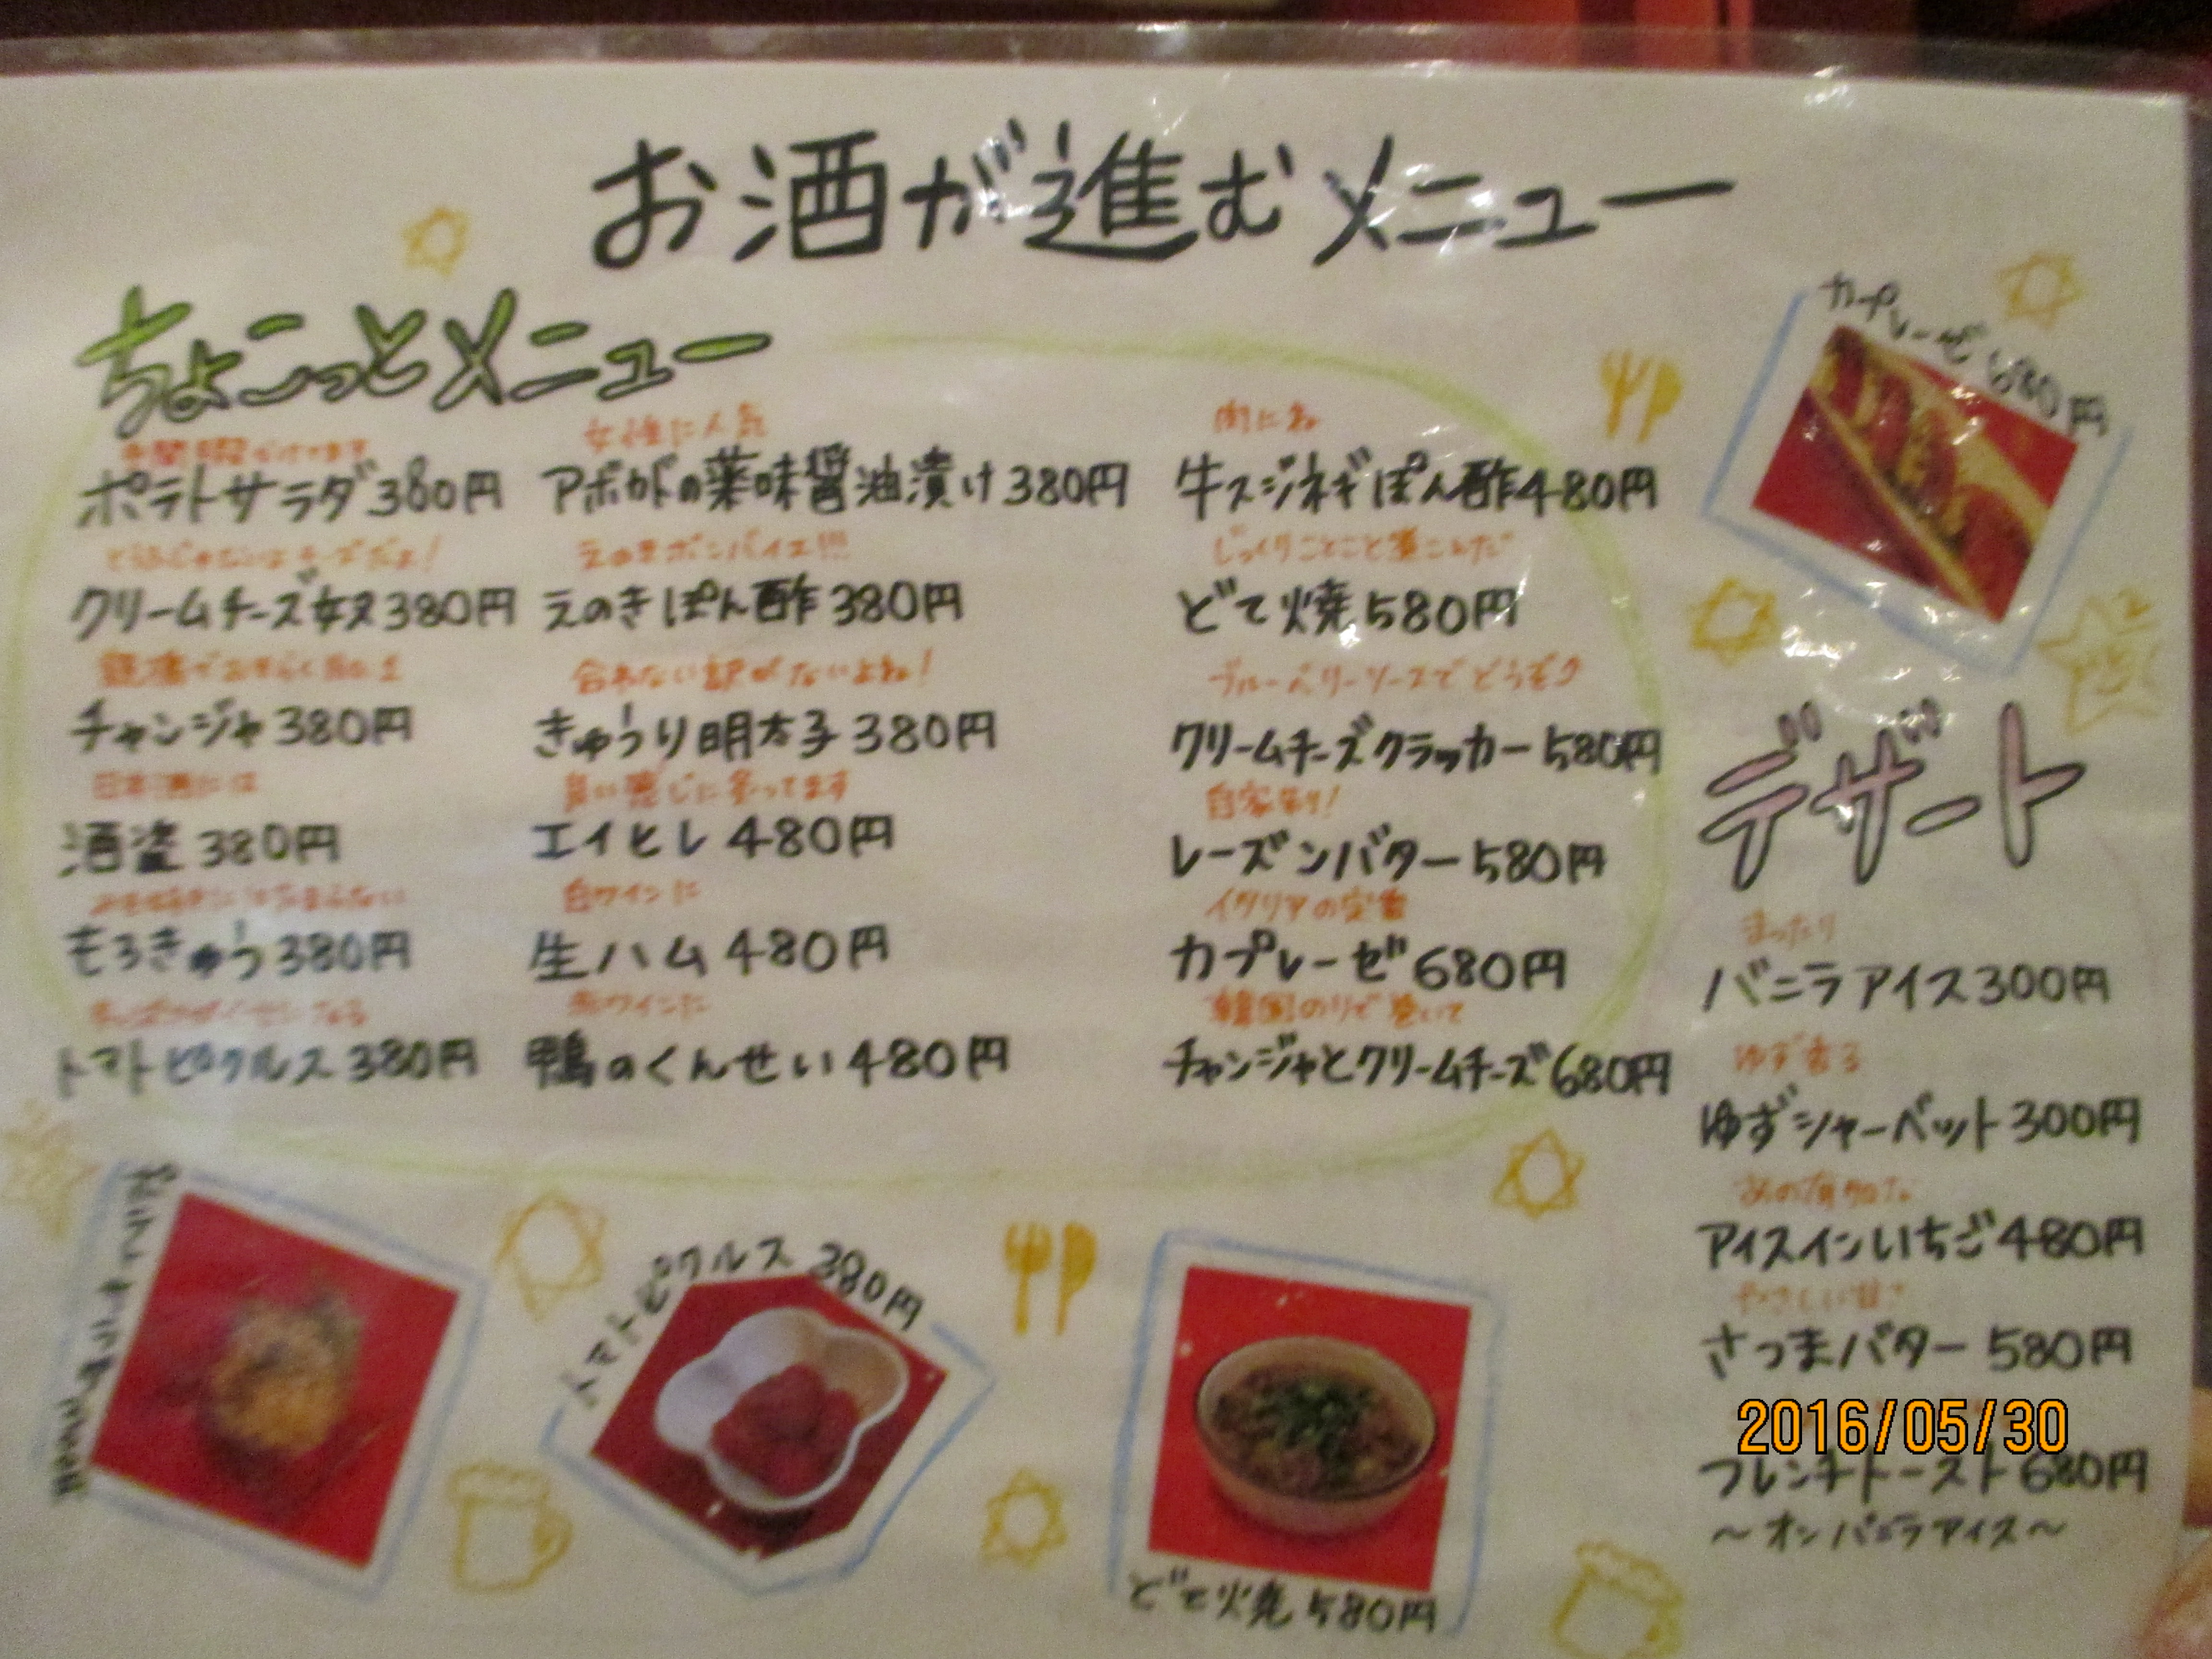 お酒が進むメニュー
ちょこっとメニュー
ポテトサラダ380円
クリームチーズ奴380円
銀橋でおそらくNo.1
チャンジャ380円
日本酒には
酒盗380円
もろきゅう380円
トマトピクルス380円
女性に人気
アボカドの薬味醤油漬け380円
えのきボンバイエ!!!
えのきぽん酢380円
合わない訳がないよね!
きゅうり明太子380円
良い感じに炙ってます
エイヒレ480円
白ワインに
生ハム480円
赤ワインに
鴨のくんせい480円
肉にね
牛スジネギぽん酢480円
じっくりことこと煮こんだ
どて焼580円
ブルーベリーソースでどうぞ
クリームチーズクラッカー580円
自家製!
レーズンバター580円
イタリアの定番
カプレーゼ680円
韓国のりで巻いて
チャンジャとクリームチーズ680円
カプレーゼ680円
デザート
まったり
バニラアイス300円
ゆず香る
ゆずシャーベット300円
あの有名な
アイスインいちご480円
やさしい甘さ
さつまバター580円
2016/05/30
フレンチトースト680円
～オンバニラアイス～
トマトピクルス380円
どて焼580円